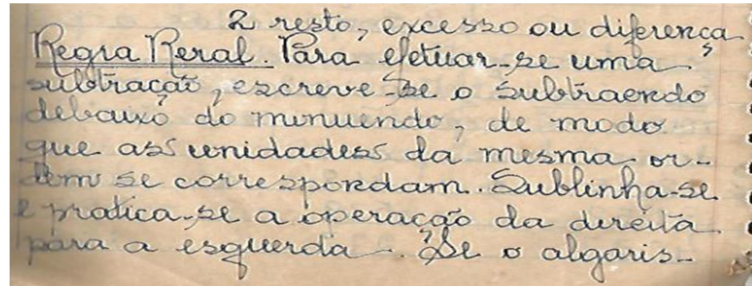 2 resto, excesso ou diferença
Regra Geral. Para efetuar-se uma
subtração, escreve-se o subtraendo
debaixo do minuendo, de modo
que as unidades da mesma or-
dem se correspondam. Sublinha-se
e pratica-se a operação da direita
para a esquerda. Se o algaris-